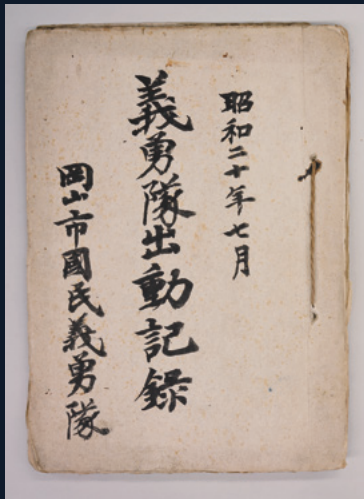 昭和二十年七月
義勇隊出動記録
岡山市國民義勇隊